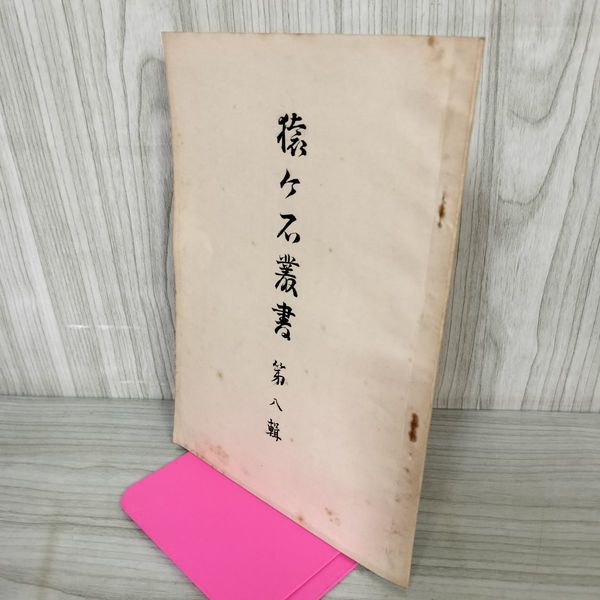 猿ケ石叢書
第八輯